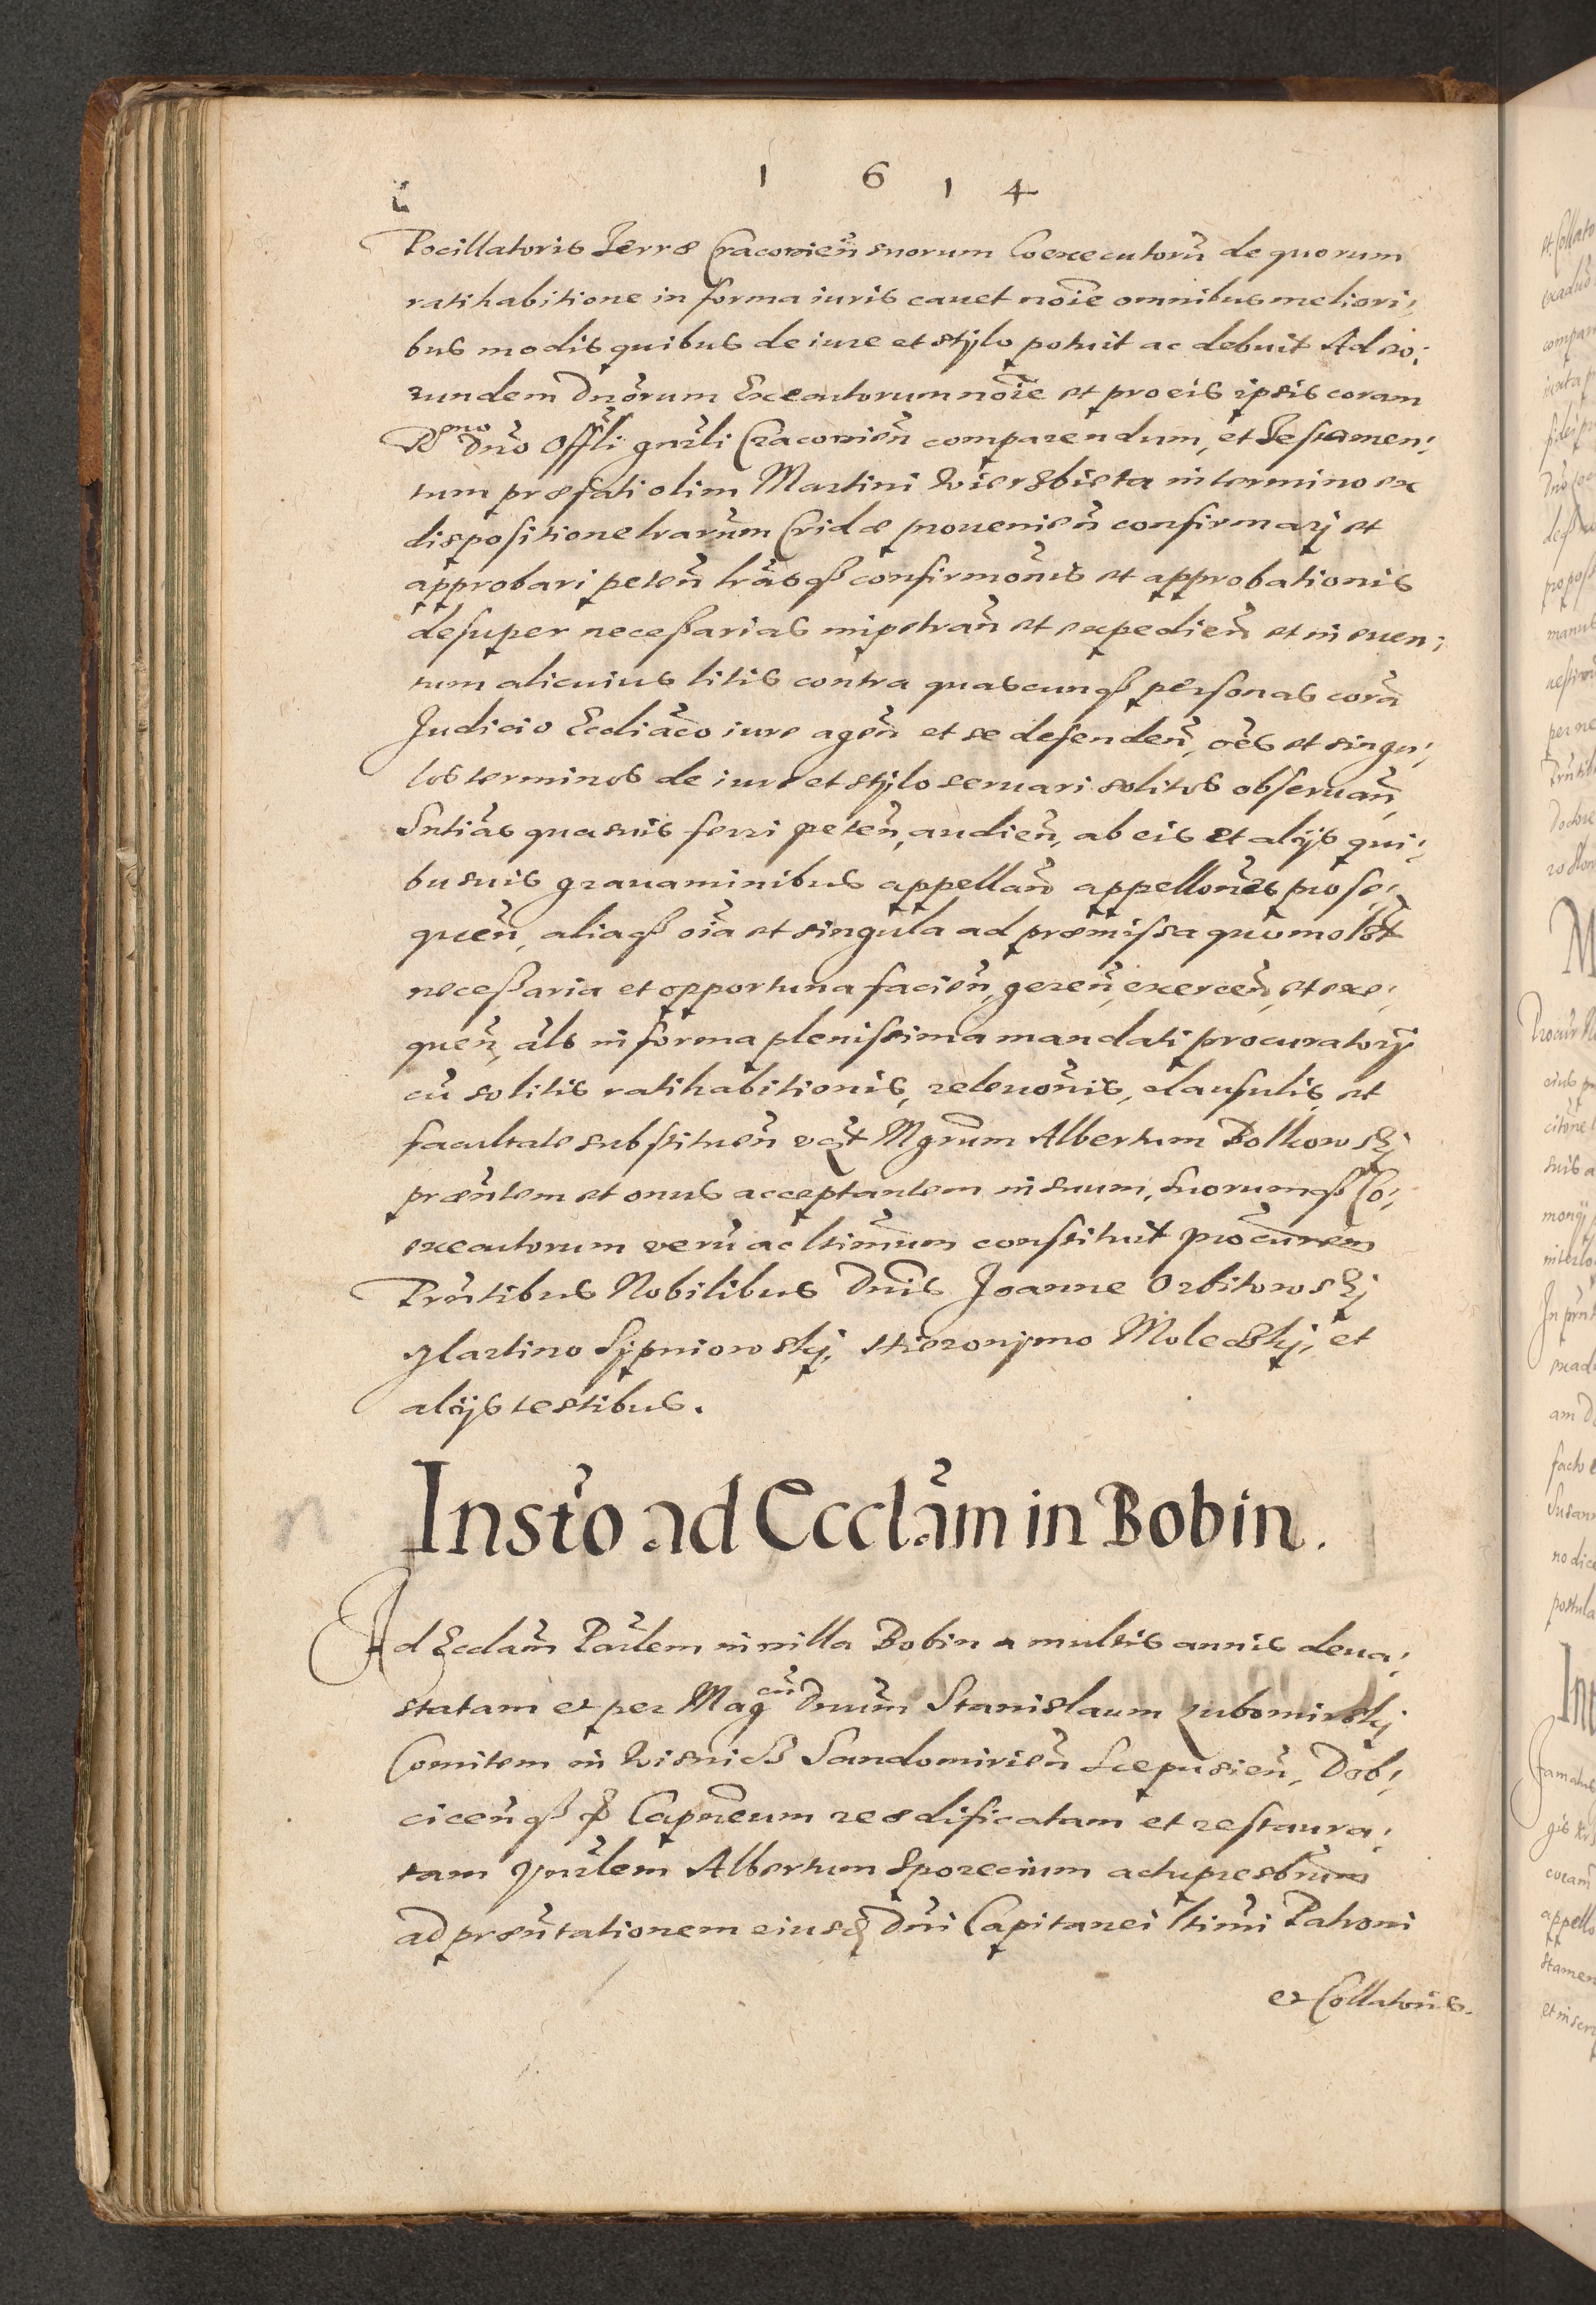 1 6 1 4
Pocillatoris Terræ Cracovien̄ suorum Coexecutorū de quorum
ratihabitione in forma iuris cavet noīe omnibus meliori,
bus modis quibus de iure et stylo potuit ac debuit Ad eo,
rundem Dnōrum Executorum noīe et pro eis ipsis coram
Rmo Dnō Offli gnrāli Cracovien̄ comparendum, et Testamen,
tum præfati olim Martini Wierzbieta in termino ex
dispositione lrarūm Cridæ provenien̄ confirmarj et
approbari peten̄ lrāsqз confirmōnis et approbationis
desuper neceßarias impetran̄ et expedien̄ et in even,
tum alicuius litis contra quascunqз personas corā
Judicio Ecclīaco iure agen̄ et se defenden̄, oēs et singu,
los terminos de iure et stylo servari solitos observan̄,
Sntiās quasvis ferri peten̄, audien̄, ab eis et alijs qui,
busvis gravaminibus appellan̄ appellonēs prose,
quen̄, aliaqз oīa et singula ad præmissa quomolt̄
neceßaria et opportuna facien̄, geren̄, exercen̄, et exe,
quen̄, āls in forma plenissima mandati procuratorij
cū solitis ratihabitionis, relevonīs, clausulis, et
facultate substituen̄ Mgrūm Albertum Bolkowskj
præntem et onus acceptantem in suum, suorumqз Co,
executorum verū ac ltimūm constituit procurēm
Prntibus Nobilibus Dnīs Joanne Orbitowskj
Martino Sypniowskj, Hieronymo Moleckj, et
alijs testibus.
Instō ad Ecclām in Bobin.
n.
Ad Ecclām Parlem in villa Bobin a multis annis deva,
statam et per Magcū Dnūm Stanislaum Lubomirskj
Comitem in Wisnicz Sandomirien̄ Scepusien̄, Dob,
cicen̄qз Capneum reædificatam et restaura,
tam Albertum Sporecium actu presbrūm
ad præntationem eiusd Dnī Capitanei ltimi Patroni
et Collatoris.